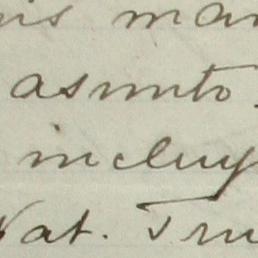 is man
asunto.
incluy
Nat. Tru